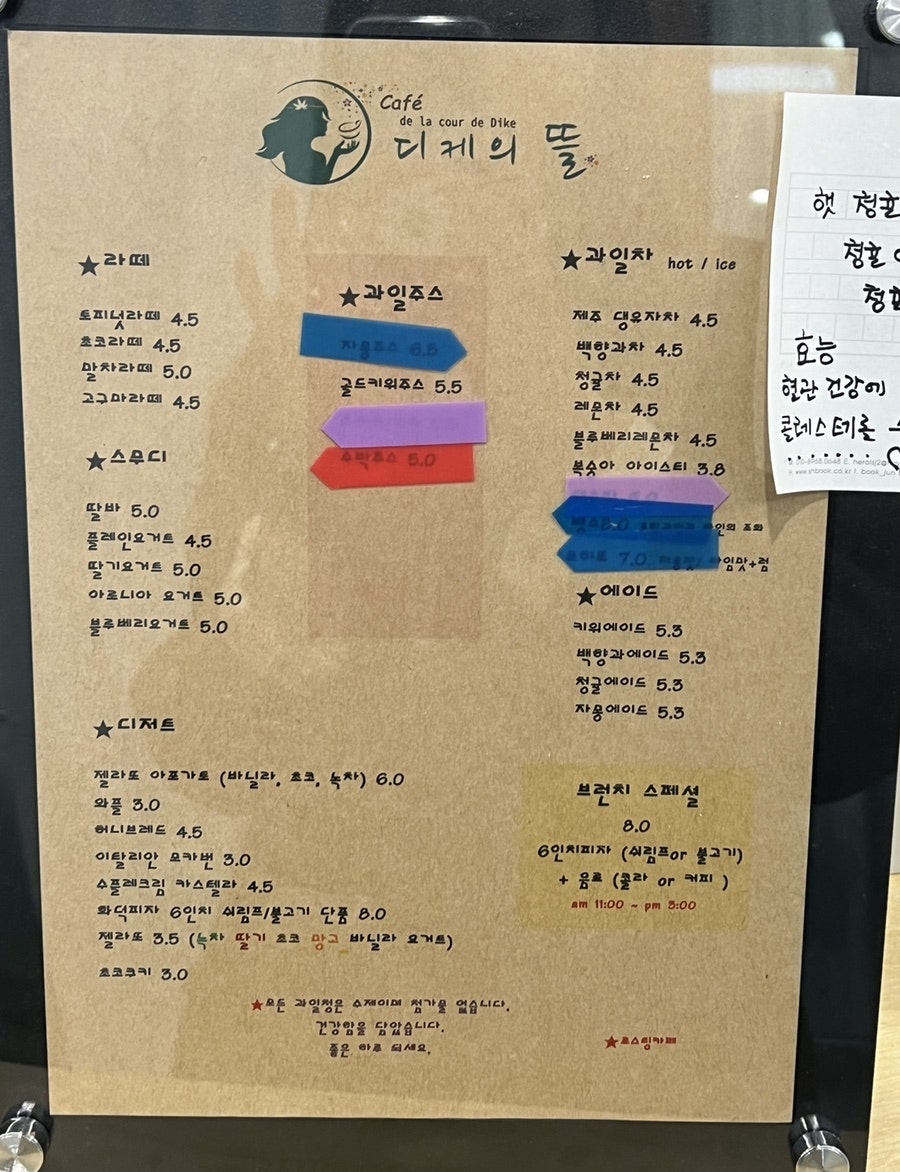 Café
de la cour de Dike
디케의 뜰
★라떼
토피넛라떼 4.5
초코라떼 4.5
말차라떼 5.0
고구마라떼 4.5
★스무디
딸바 5.0
플레인요거트 4.5
딸기요거트 5.0
아로니아 요거트 5.0
블루베리요거트 5.0
★과일주스
자몽주스 6.5
골드키위주스 5.5
수박주스 5.0
★과일차 hot / ice
제주 댕유자차 4.5
백향과차 4.5
청귤차 4.5
레몬차 4.5
블루베리레몬차 4.5
복숭아 아이스티 3.8
의 조화
7.0 라임맛+럼
★에이드
키위에이드 5.3
백향과에이드 5.3
청귤에이드 5.3
자몽에이드 5.3
★디저트
젤라또 아포가토 (바닐라, 초코, 녹차) 6.0
와플 3.0
허니브레드 4.5
이탈리안 모카번 3.0
수플레크림 카스텔라 4.5
화덕피자 6인치 쉬림프/불고기 단품 8.0
젤라또 3.5 (녹차 딸기 초코 망고 바닐라 요거트)
초코쿠키 3.0
브런치 스페셜
8.0
6인치피자 (쉬림프or 불고기)
+ 음료 (콜라 or 커피 )
am 11:00 ~ pm 3:00
★모든 과일청은 수제이며 첨가물 없습니다.
건강함을 담았습니다.
좋은 하루 되세요.
★로스팅카페
햇 청훈
청훈
청훈
효능
혈관 건강에
콜레스테롤